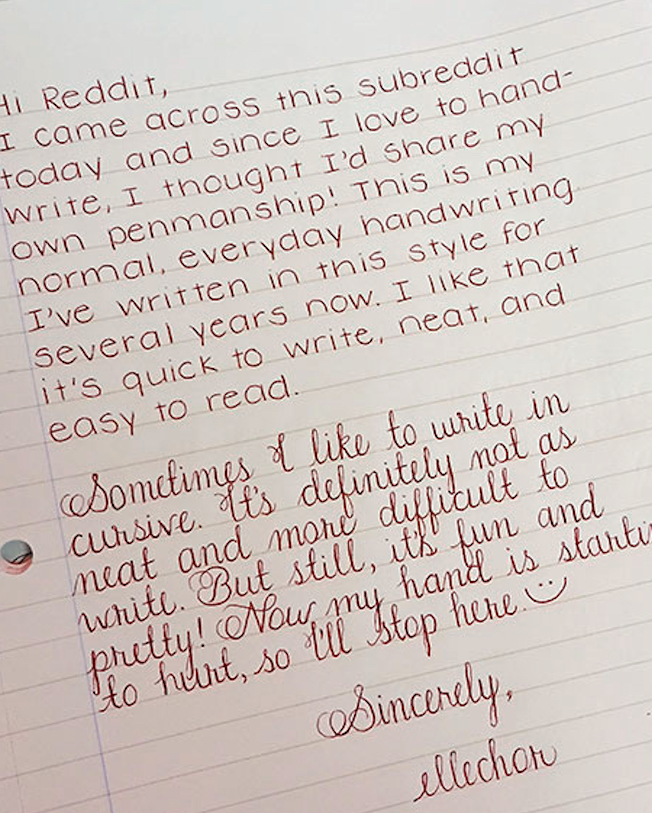 Hi Reddit,
I came across this subreddit
today and since I love to hand-
write, I thought I'd share my
own penmanship! This is my
normal, everyday handwriting
I've written in this style for
several years now. I like that
it's quick to write, neat, and
easy to read.
Sometimes I like to write in
cursive. It's definitely not as
neat and more difficult to
write. But still, it's fun and
pretty! Now my hand is startin
to hurt, so I'll stop here. :)
Sincerely,
ellechor